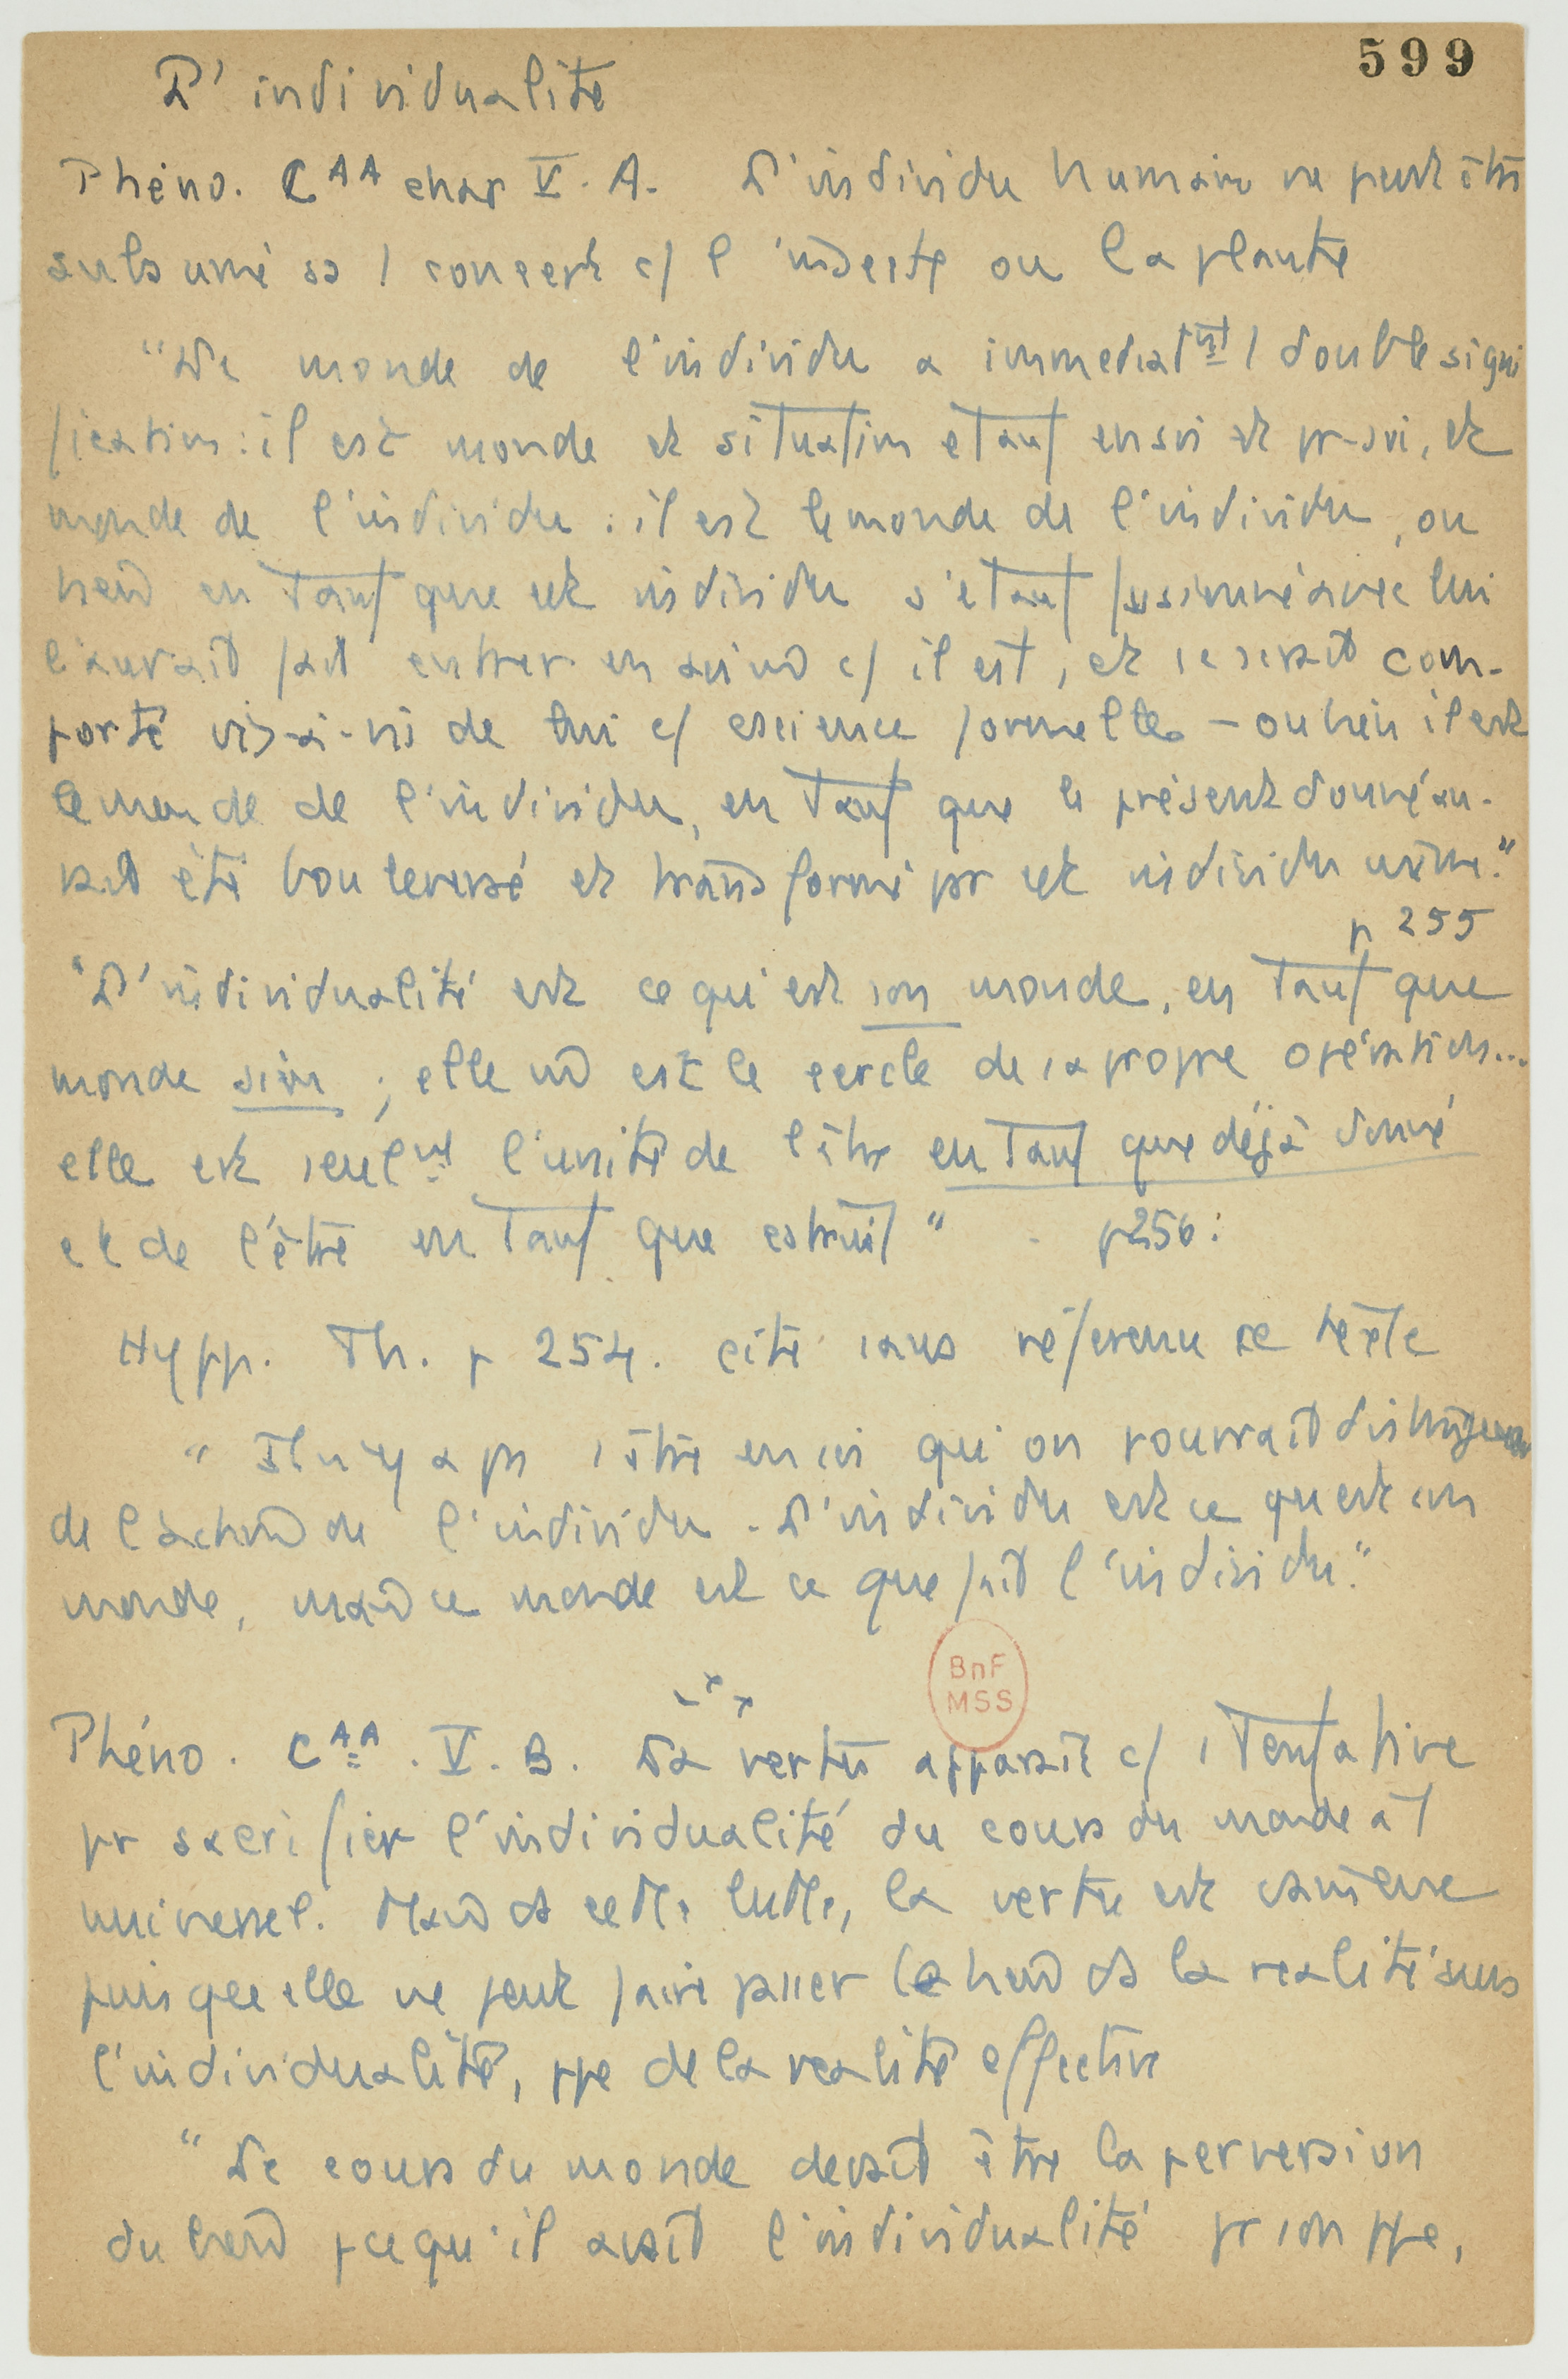 599
L'individualité
Phéno. C AA chap V. A. L'individu humain ne peut être
subsumé ss / concept c/ l'insecte ou la plante
"Le monde de l'individu a immédiatmt / double signi
fication : il est monde et situation étant en soi et pr-soi, et
monde de l'individu : il est le monde de l'individu, ou
bien en tant que cet individu s'étant fusionné avec lui
l'aurait fait entrer en soi c/ il est, et se serait com-
porté vis-à-vis de lui c/ cscience formelle - ou bien il est
le monde de l'individu, en tant que le présent donné au-
rait été bouleversé et transformé pr cet individu même."
p 255
"L'individualité est ce qu'est son monde, en tant que
monde sien ; elle est le cercle de sa propre opération...
elle est seulmt l'unité de l'être en tant que déjà donné
et de l'être en tant que cstruit" p 256 :
Hypp. Th. p 254. cite sans référence ce texte
"Il n'y a ps / être en soi qu'on pourrait distinguer
de l'action de l'individu. L'individu est ce qu'est son
monde, mais ce monde est ce que fait l'individu."
BnF
MSS
Phéno. C AA. V. B. La vertu apparaît c/ / tentative
pr sacrifier l'individualité du cours du monde à l'
universel. Mais ds cette lutte, la vertu est vaincue
puisque elle ne peut faire passer le bien ds la réalité sans
l'individualité, ppe de la réalité effective
"Le cours du monde devait être la perversion
du bien pce qu'il avait l'individualité pr son ppe,